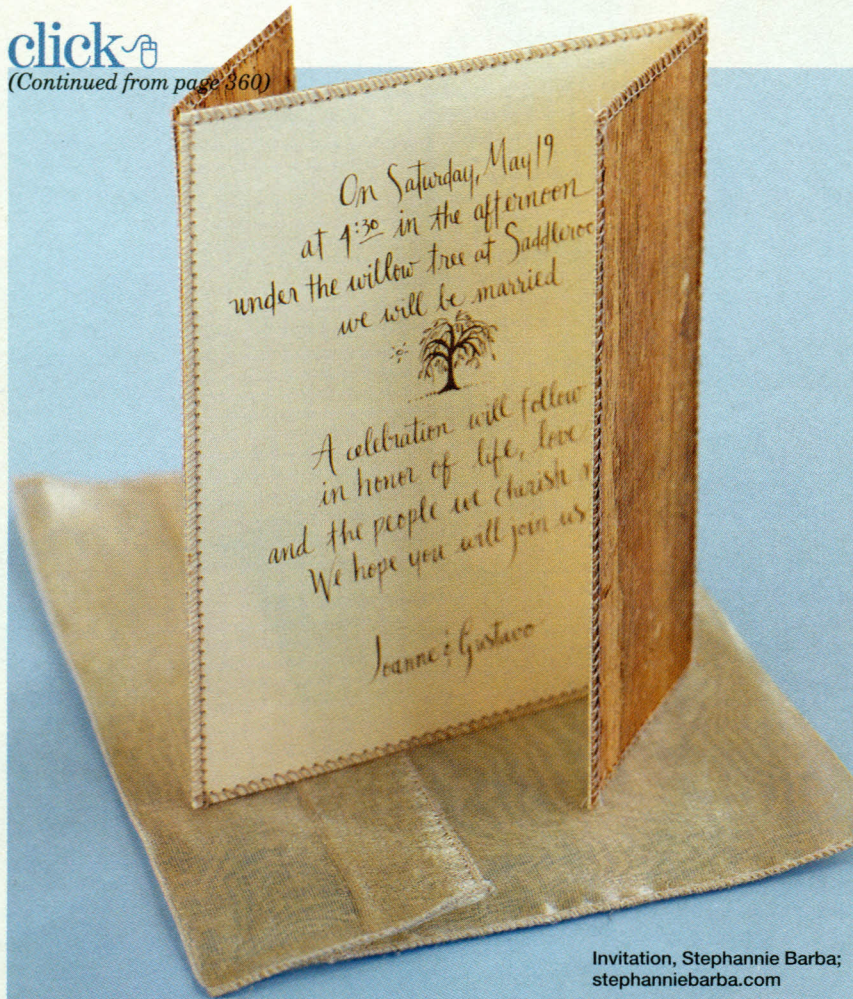 click
(Continued from page 360)
On Saturday, May 19
at 4:30 in the afternoon
under the willow tree at Saddleroc
we will be married
A celebration will follow
in honor of life, love
and the people we cherish
We hope you will join us
Joanne & Gustavo
Invitation, Stephannie Barba;
stephanniebarba.com